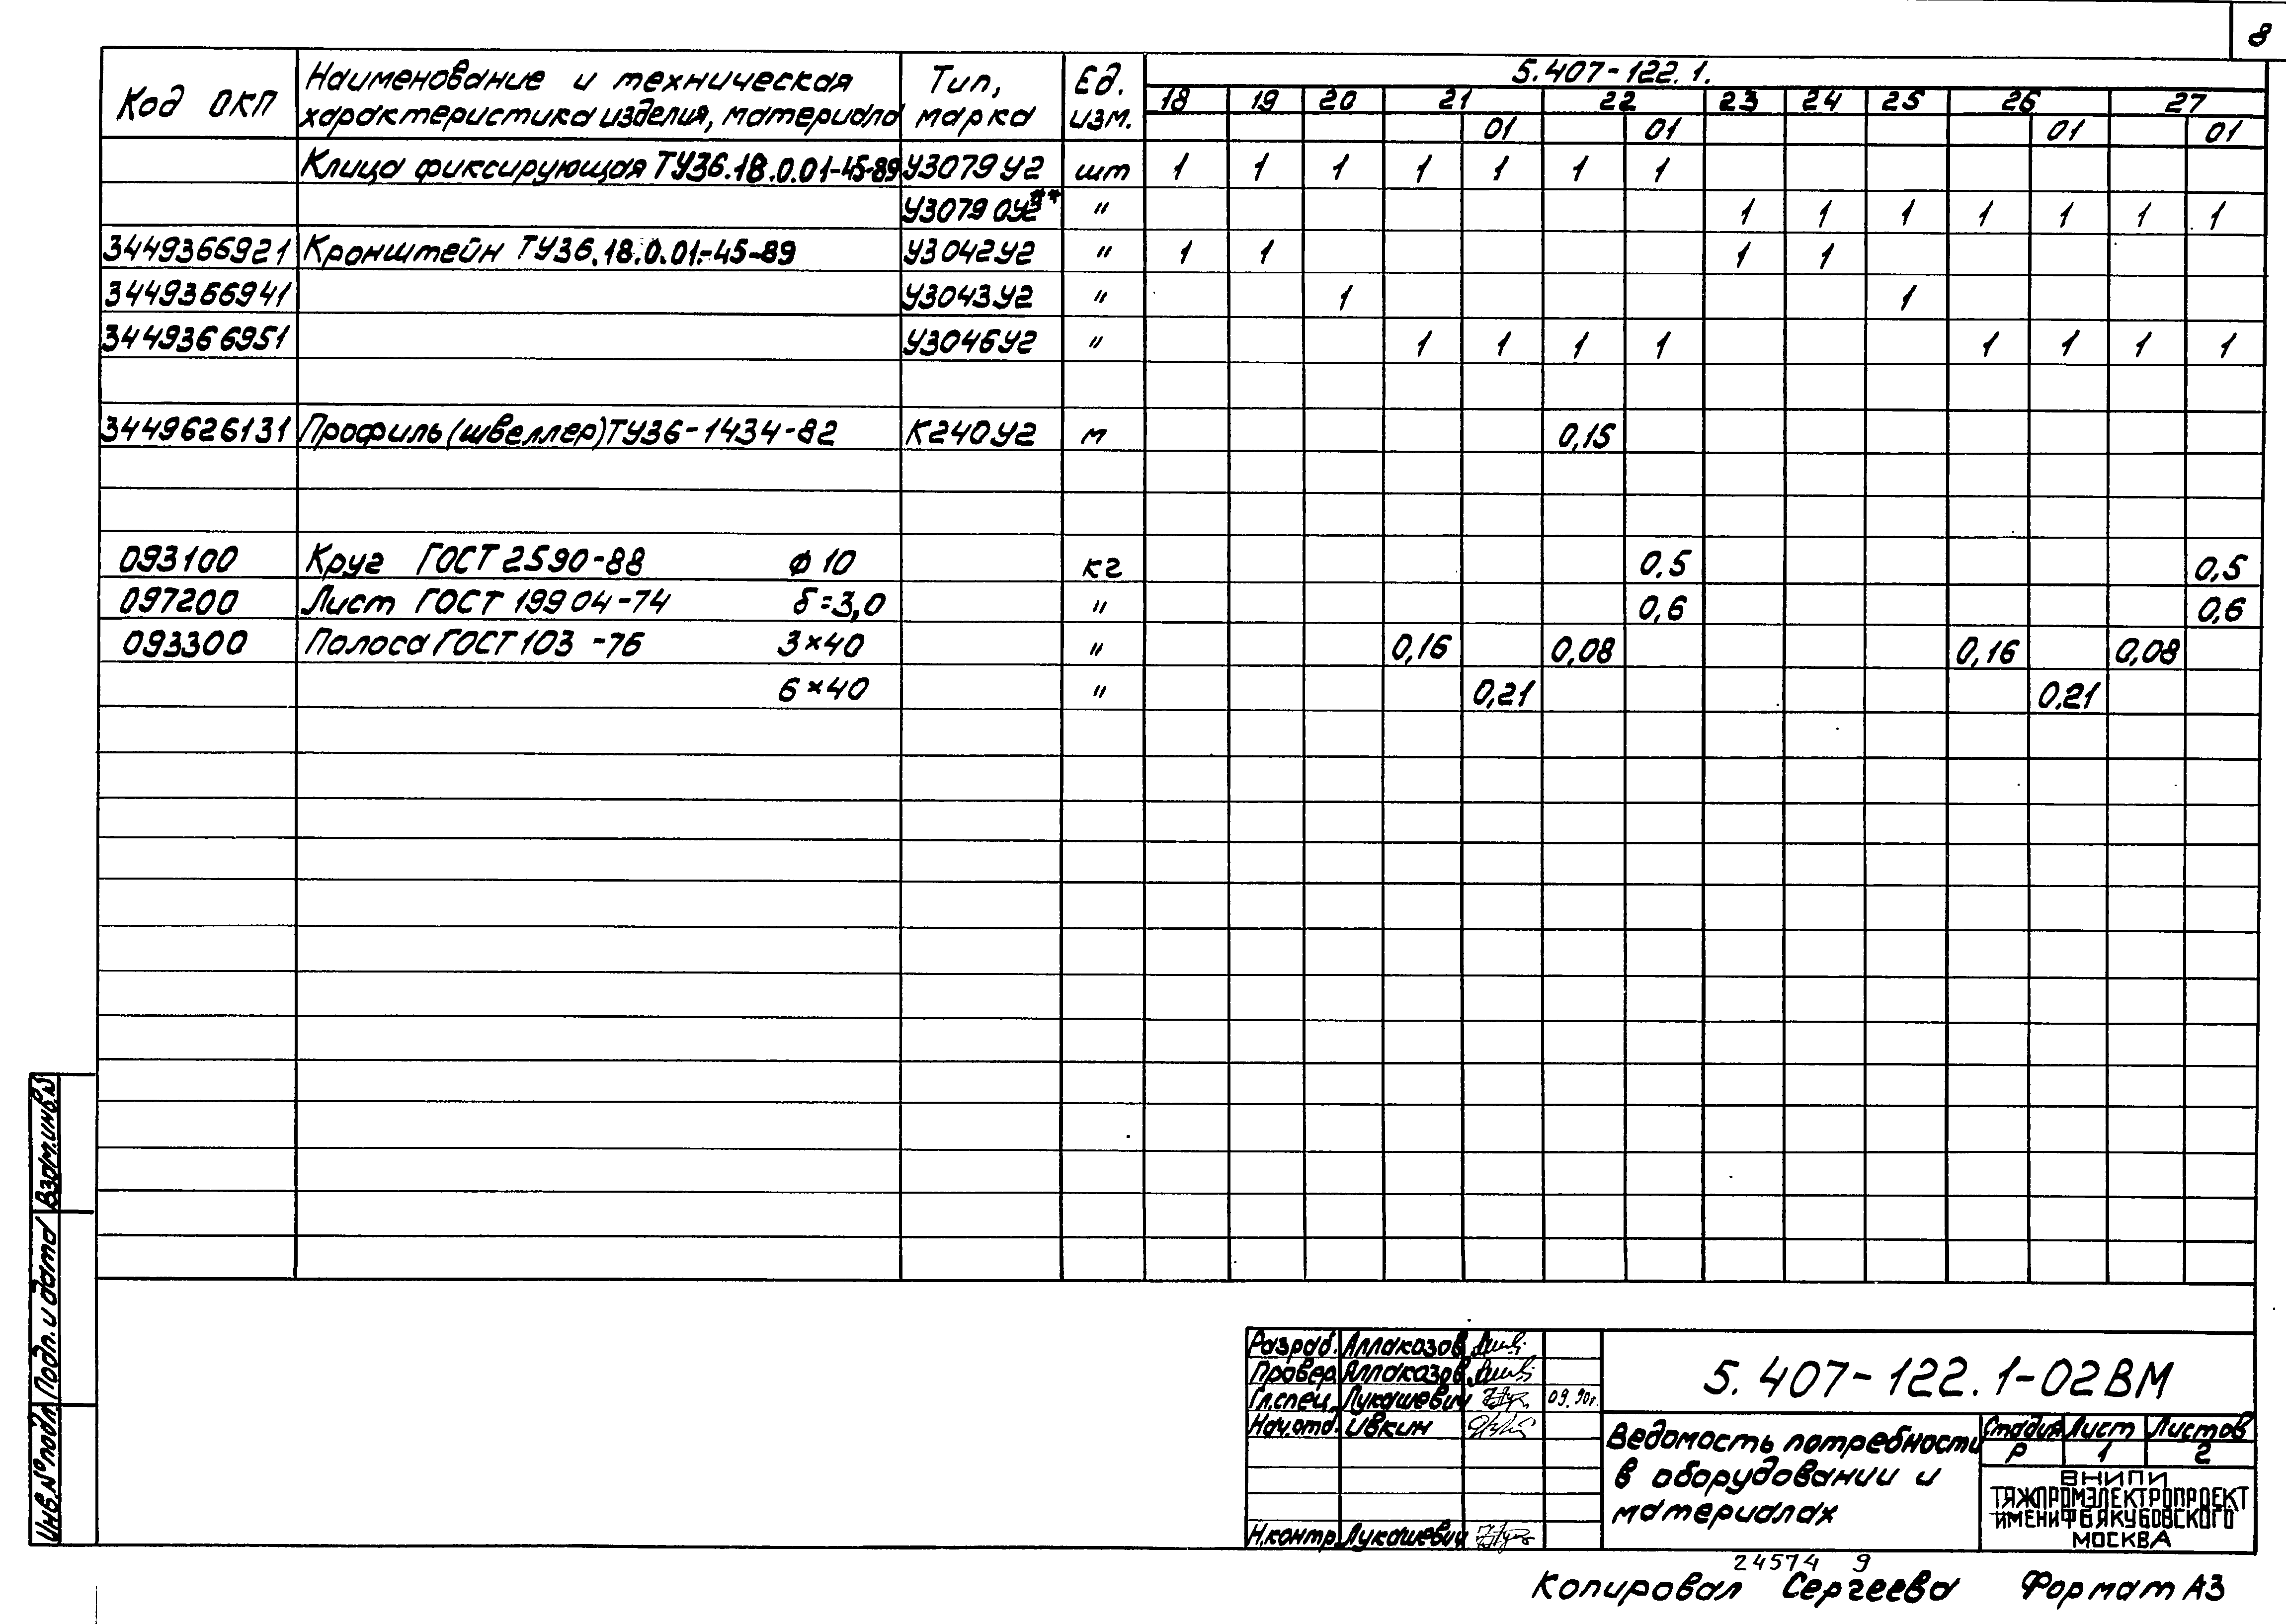 8
Код ОКП Наименование и техническая характеристика изделия, материала Тип, марка Ед. изм. 5.407-122.1.
18 19 20 21 22 23 24 25 26 27
01 01 01 01
Клица фиксирующая ТУ36.18.0.01-45-89 У3079У2 шт 1 1 1 1 1 1 1
У3079 0У2** " 1 1 1 1 1 1 1
3449366921 Кронштейн ТУ36.18.0.01-45-89 У3042У2 " 1 1 1 1
3449366941 У3043У2 " 1 1
3449366951 У3046У2 " 1 1 1 1 1 1 1 1
3449626131 Профиль (швеллер) ТУ36-1434-82 К240У2 м 0,15
093100 Круг ГОСТ 2590-88 ф 10 кг 0,5 0,5
097200 Лист ГОСТ 19904-74 δ=3,0 " 0,6 0,6
093300 Полоса ГОСТ 103-76 3×40 " 0,16 0,08 0,16 0,08
6×40 " 0,21 0,21
Взам.инв.№
Подп. и дата
Инв.№подл.
Разраб. Аллакозов
Провер. Аллакозов
Гл.спец. Лукашевич 09.90г.
Нач.отд. Ивкин
Н.контр. Лукашевич
5.407-122.1-02ВМ
Ведомость потребности
в оборудовании и
материалах
Стадия Лист Листов
Р 1 2
ВНИПИ
ТЯЖПРОМЭЛЕКТРОПРОЕКТ
ИМЕНИ Ф Б ЯКУБОВСКОГО
МОСКВА
24574 9
Копировал Сергеева Формат А3